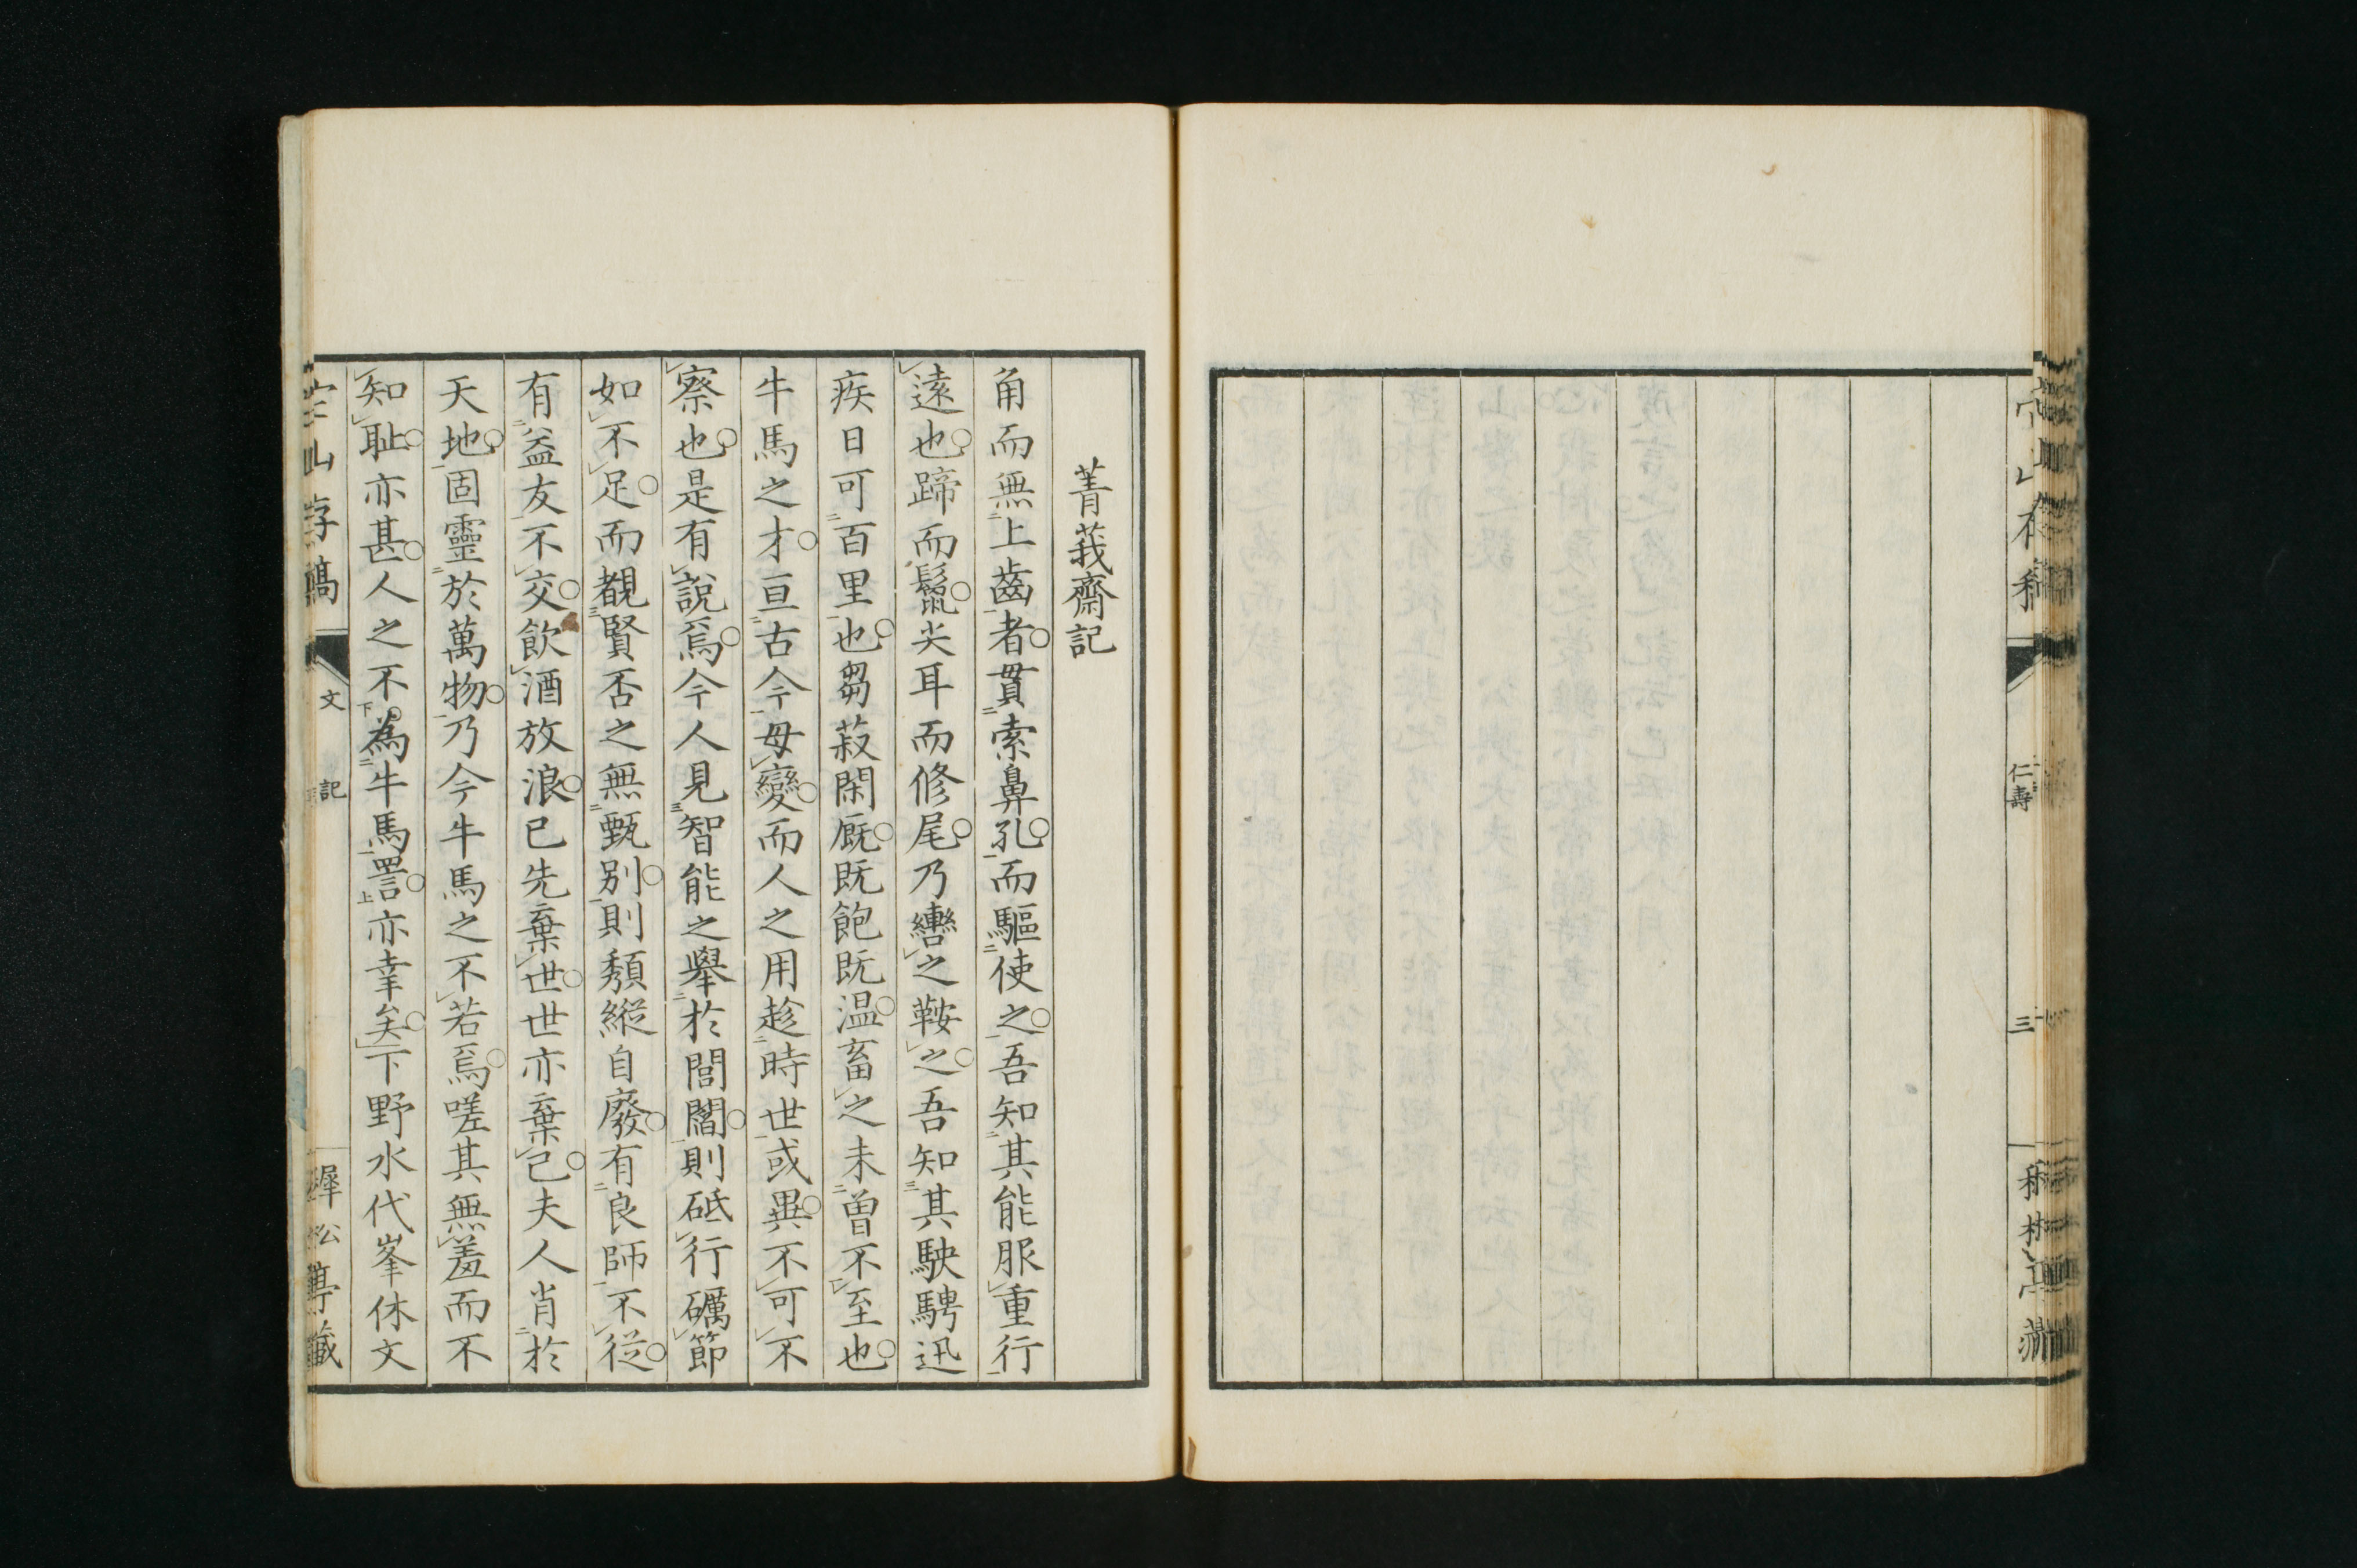 仁壽
三
菁莪齋記
角而無上齒者貫索鼻孔而驅使之吾知其能服重行
遠也蹄而鬛尖耳而修尾乃轡之鞍之吾知其駛騁迅
疾日可百里也芻菽閑廐既飽既温畜之未曽不至也
牛馬之才亘古今毋變而人之用趁時世或異不可不
察也是有說焉今人見智能之舉於閭閻則砥行礪節
如不足而覩賢否之無甄別則頽縱自廢有良師不從
有益友不交飲酒放浪已先棄世世亦棄己夫人肖於
天地固靈於萬物乃今牛馬之不若焉嗟其無羞而不
知恥亦甚人之不為牛馬詈亦幸矣下野水代峯休文
山存稿
文
記
松亭藏